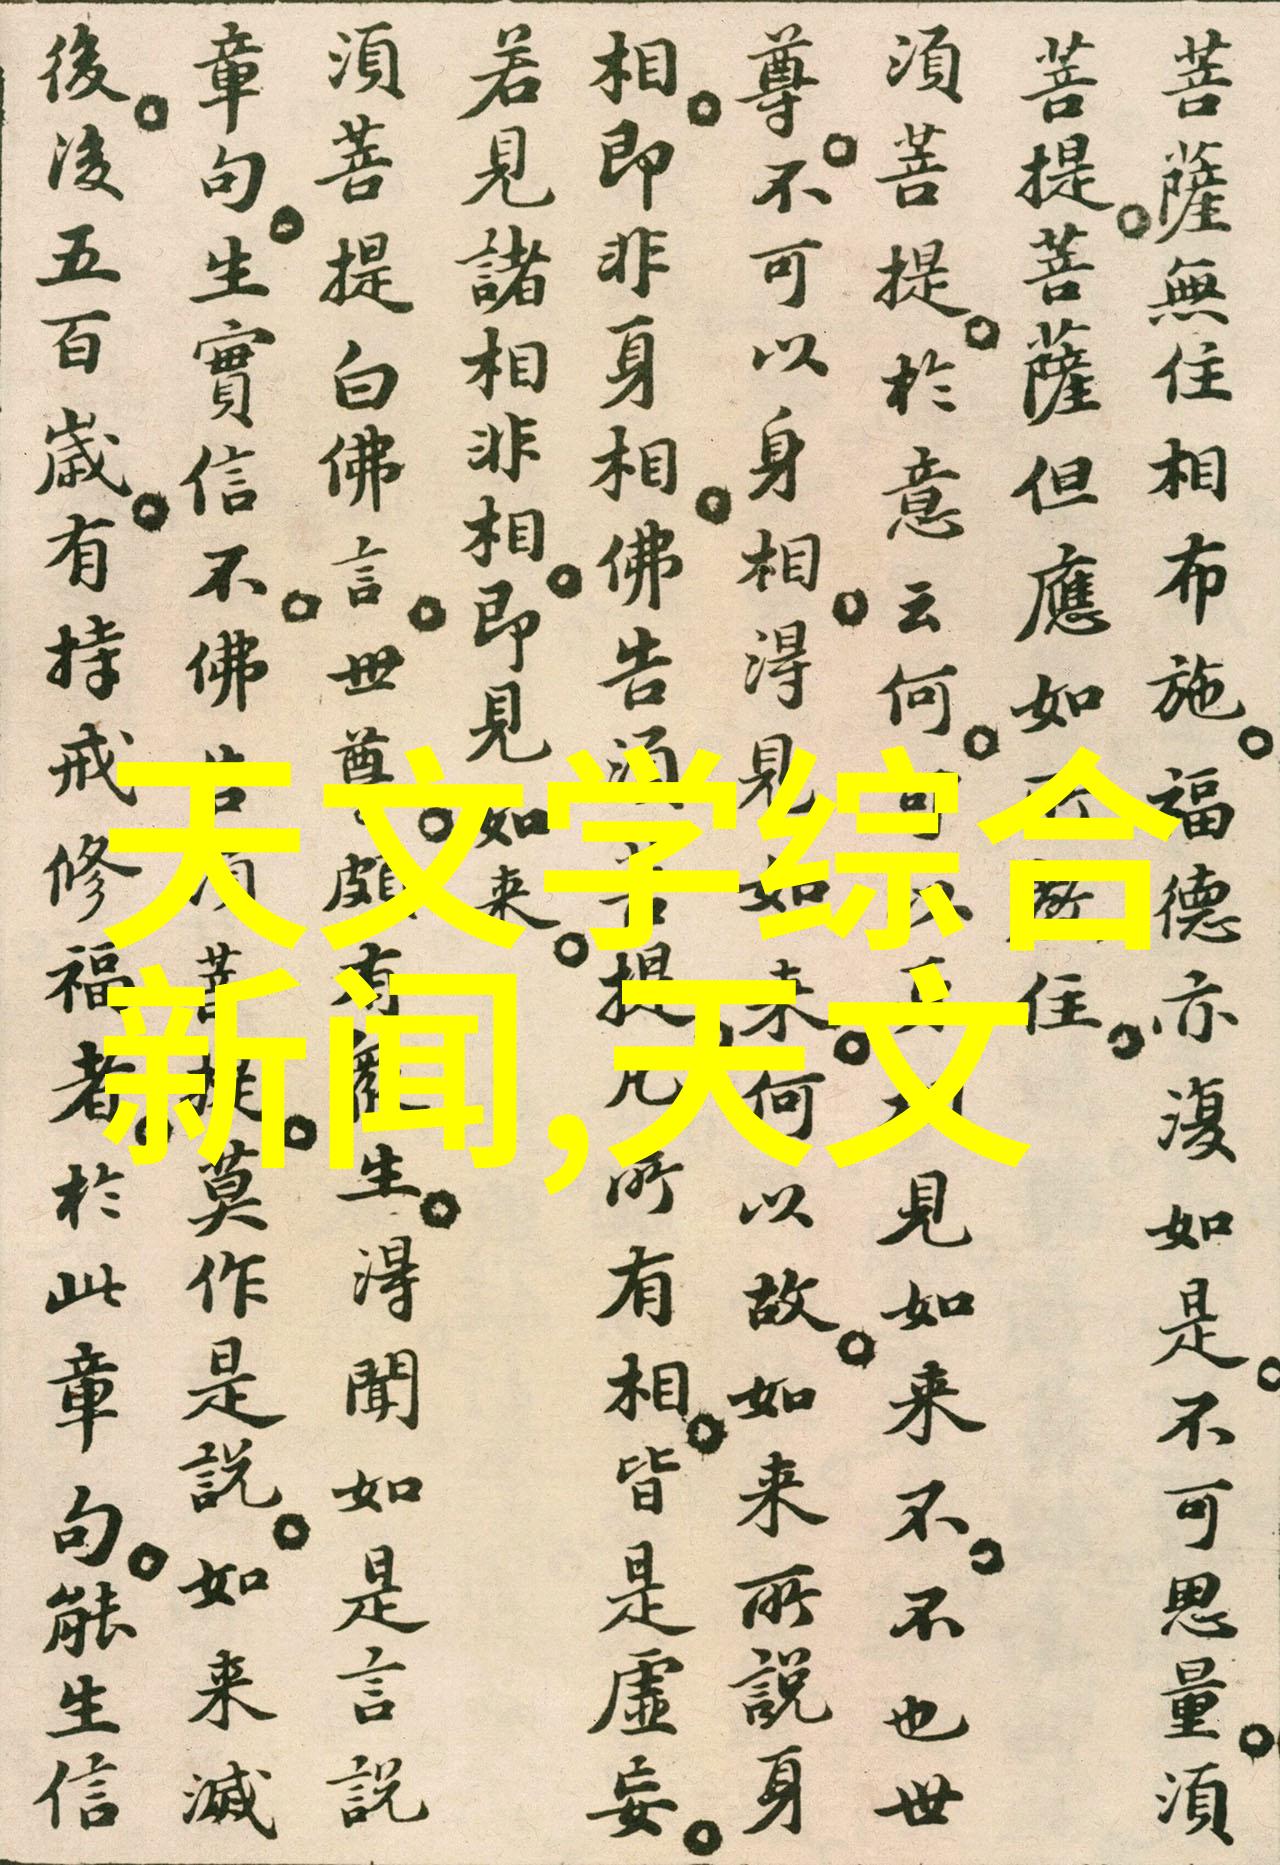 菩薩無住相布施。福德亦復如是。不可思量。須
菩提。菩薩但應如所教住。
須菩提。於意云何。可以身相見如来不。不也世
尊。不可以身相得見如来。何以故。如来所說身
相。即非身相。佛告須菩提。凡所有相。皆是虛妄。
若見諸相非相。即見如来。
須菩提白佛言。世尊。頗有衆生。得聞如是言說
章句。生實信不。佛告須菩提。莫作是說。如来滅
後。後五百歲。有持戒修福者。於此章句。能生信
天文学综合
新闻,天文